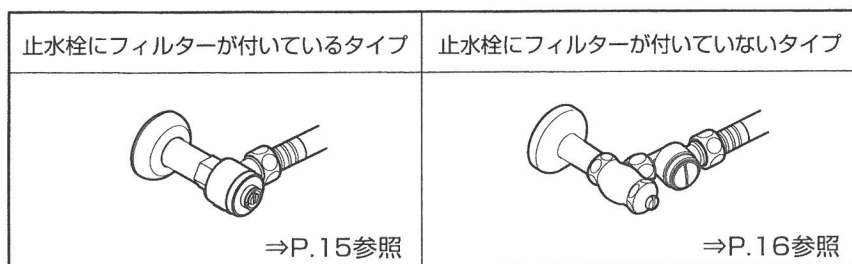 止水栓にフィルターが付いているタイプ
止水栓にフィルターが付いていないタイプ
⇒P.15参照
⇒P.16参照